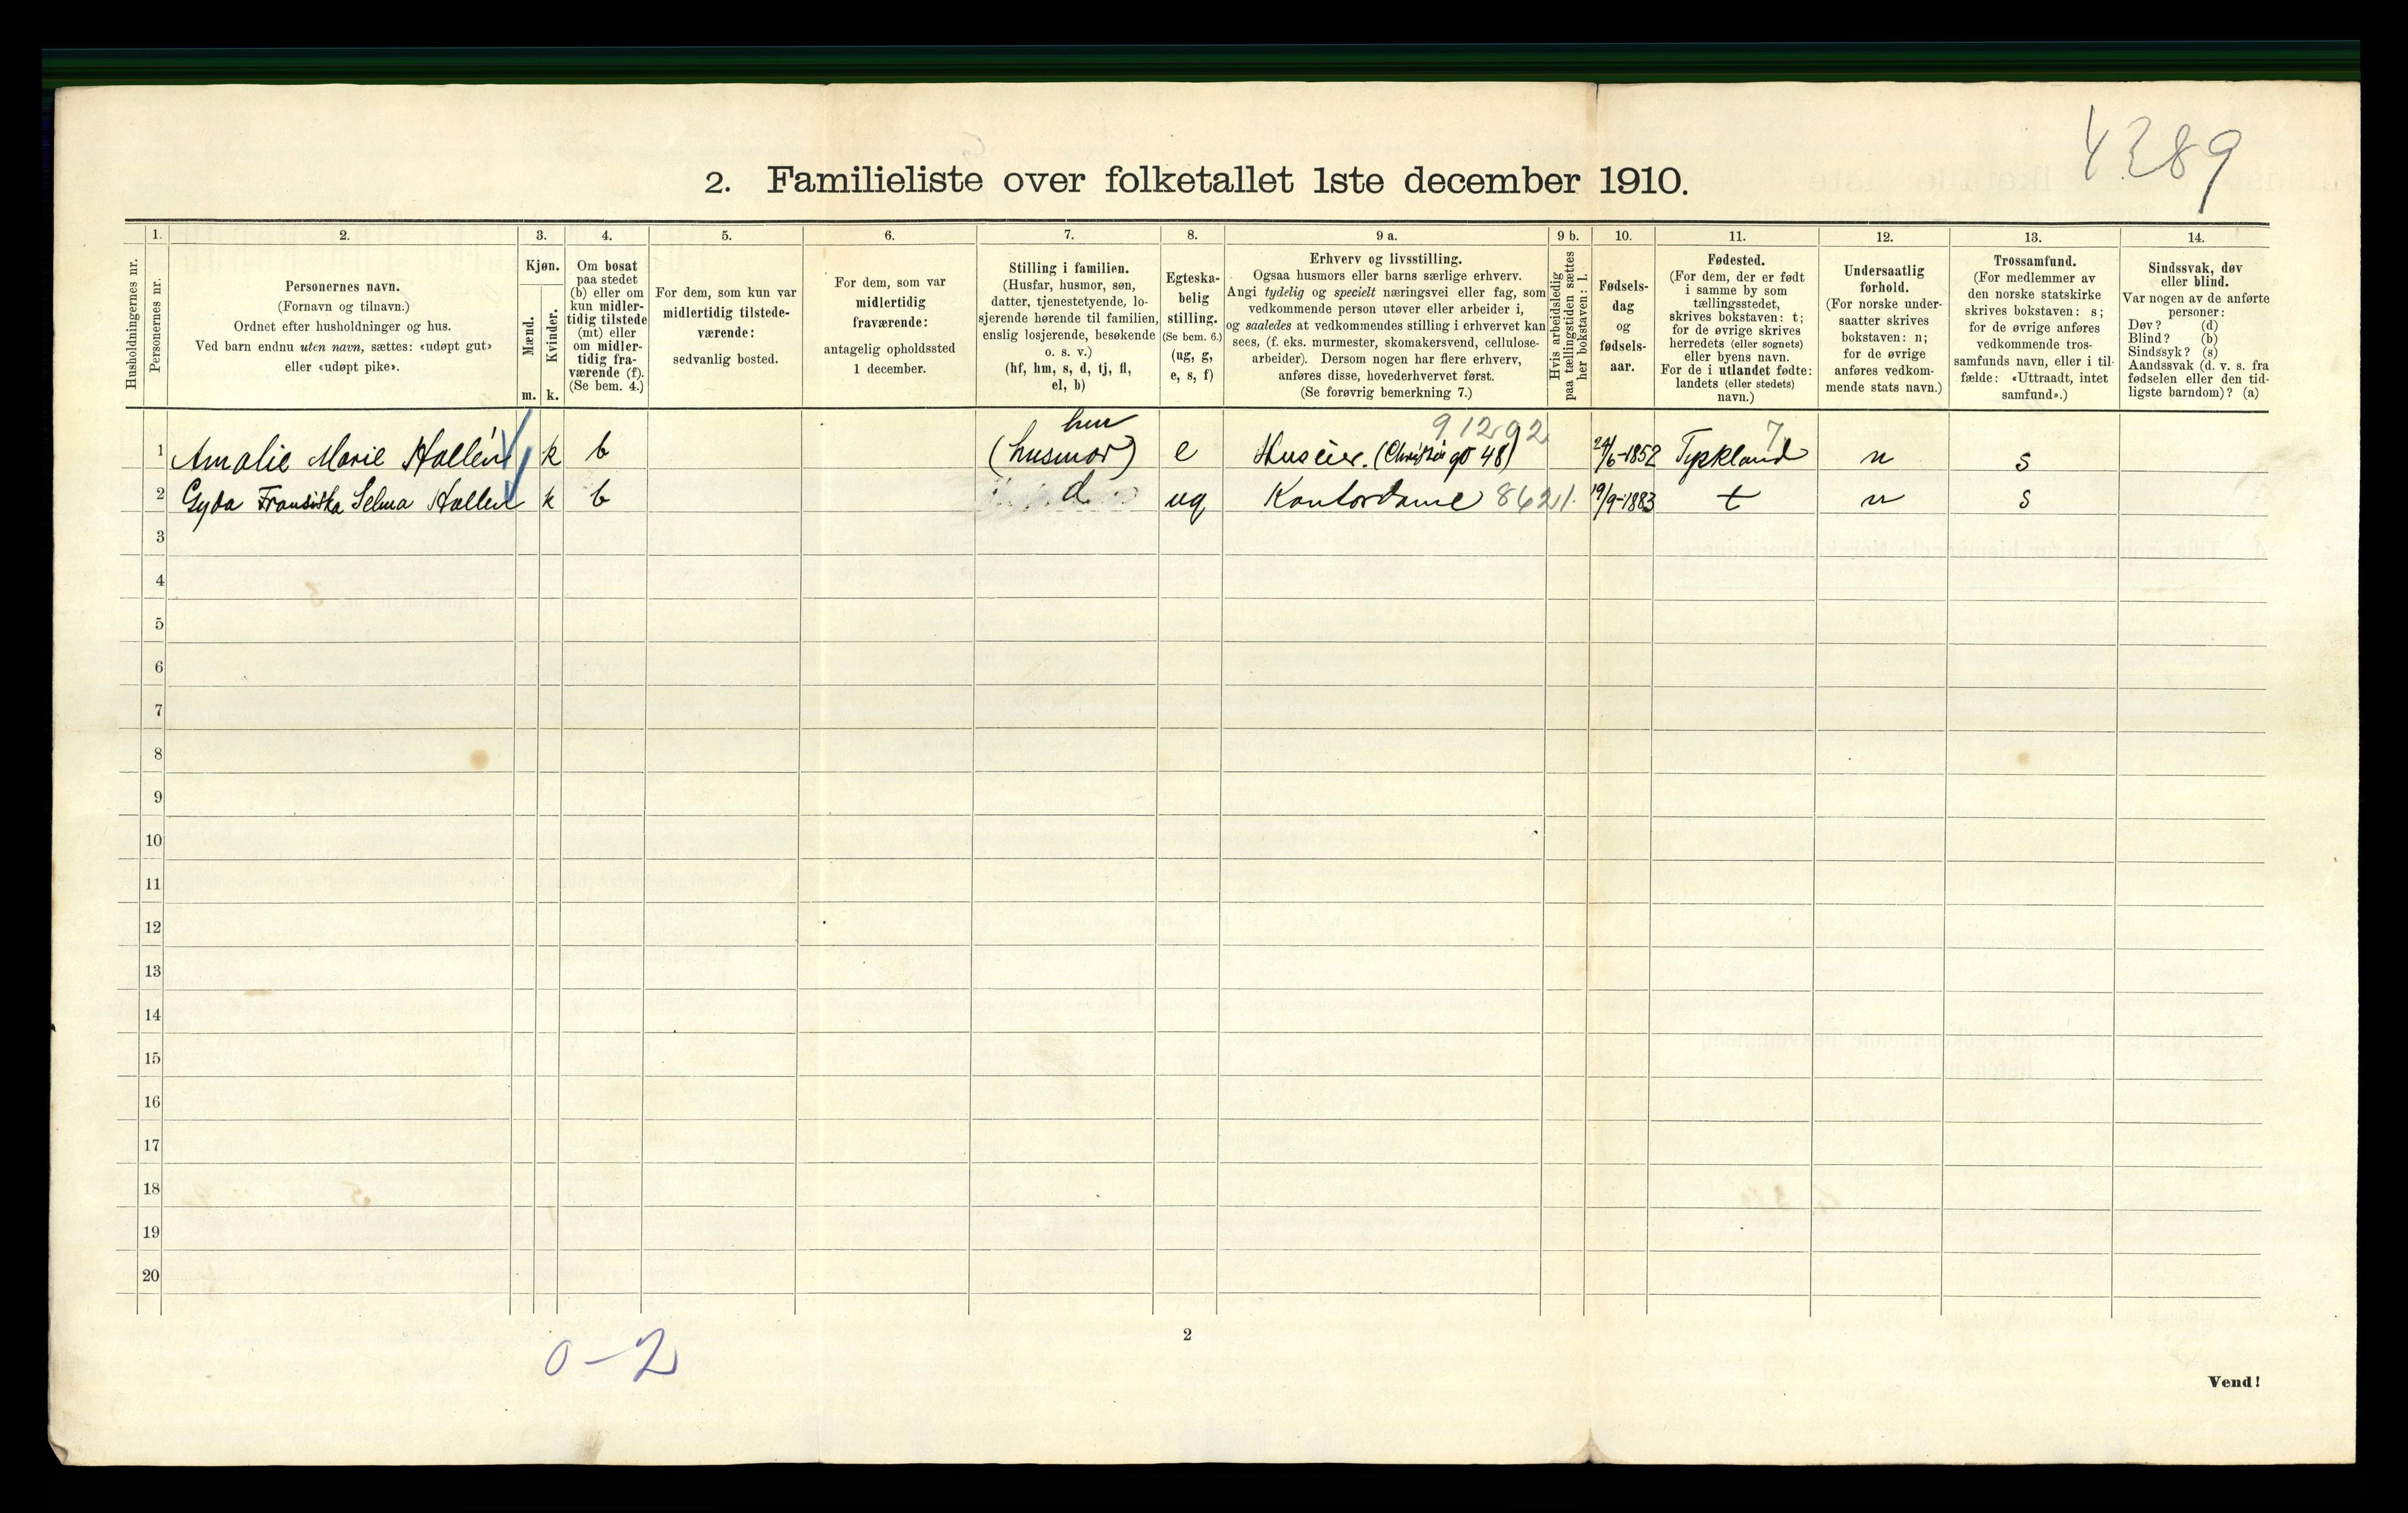 4289
2. Familieliste over folketallet 1ste december 1910.
Husholdningernes nr.
1.
Personernes nr.
2.
Personernes navn.
(Fornavn og tilnavn.)
Ordnet efter husholdninger og hus.
Ved barn endnu uten navn, sættes: «udøpt gut»
eller «udøpt pike».
3.
Kjøn.
Mænd.
Kvinder.
m. k.
4.
Om bosat
paa stedet
(b) eller om
kun midler-
tidig tilstede
(mt) eller
om midler-
tidig fra-
værende (f).
(Se bem. 4.)
5.
For dem, som kun var
midlertidig tilstede-
værende:
sedvanlig bosted.
6.
For dem, som var
midlertidig
fraværende:
antagelig opholdssted
1 december.
7.
Stilling i familien.
(Husfar, husmor, søn,
datter, tjenestetyende, lo-
sjerende hørende til familien,
enslig losjerende, besøkende
o. s. v.)
(hf, hm, s, d, tj, fl,
el, b)
8.
Egteska-
belig
stilling.
(Se bem. 6.)
(ug, g,
e, s, f)
9 a.
Erhverv og livsstilling.
Ogsaa husmors eller barns særlige erhverv.
Angi tydelig og specielt næringsvei eller fag, som
vedkommende person utøver eller arbeider i,
og saaledes at vedkommendes stilling i erhvervet kan
sees, (f. eks. murmester, skomakersvend, cellulose-
arbeider). Dersom nogen har flere erhverv,
anføres disse, hovederhvervet først.
(Se forøvrig bemerkning 7.)
9 b.
Hvis arbeidsledig
paa tællingstiden sættes
her bokstaven: l.
10.
Fødsels-
dag
og
fødsels-
aar.
11.
Fødested.
(For dem, der er født
i samme by som
tællingsstedet,
skrives bokstaven: t;
for de øvrige skrives
herredets (eller sognets)
eller byens navn.
For de i utlandet fødte:
landets (eller stedets)
navn.)
12.
Undersaatlig
forhold.
(For norske under-
saatter skrives
bokstaven: n;
for de øvrige
anføres vedkom-
mende stats navn.)
13.
Trossamfund.
(For medlemmer av
den norske statskirke
skrives bokstaven: s;
for de øvrige anføres
vedkommende tros-
samfunds navn, eller i til-
fælde: «Uttraadt, intet
samfund».)
14.
Sindssvak, døv
eller blind.
Var nogen av de anførte
personer:
Døv? (d)
Blind? (b)
Sindssyk? (s)
Aandssvak (d. v. s. fra
fødselen eller den tid-
ligste barndom)? (a)
hm 91292 7
1 Amalie Marie Hallén k b (husmor) e Huseier. (Christies gt 48) 24/6-1852 Tyskland n s
2 Gyda Fransiska Selma Hallen k b d ug Kontordame 8621. 19/9-1883 t n s
3
4
5
6
7
8
9
10
11
12
13
14
15
16
17
18
19
20
0-2
2
Vend!